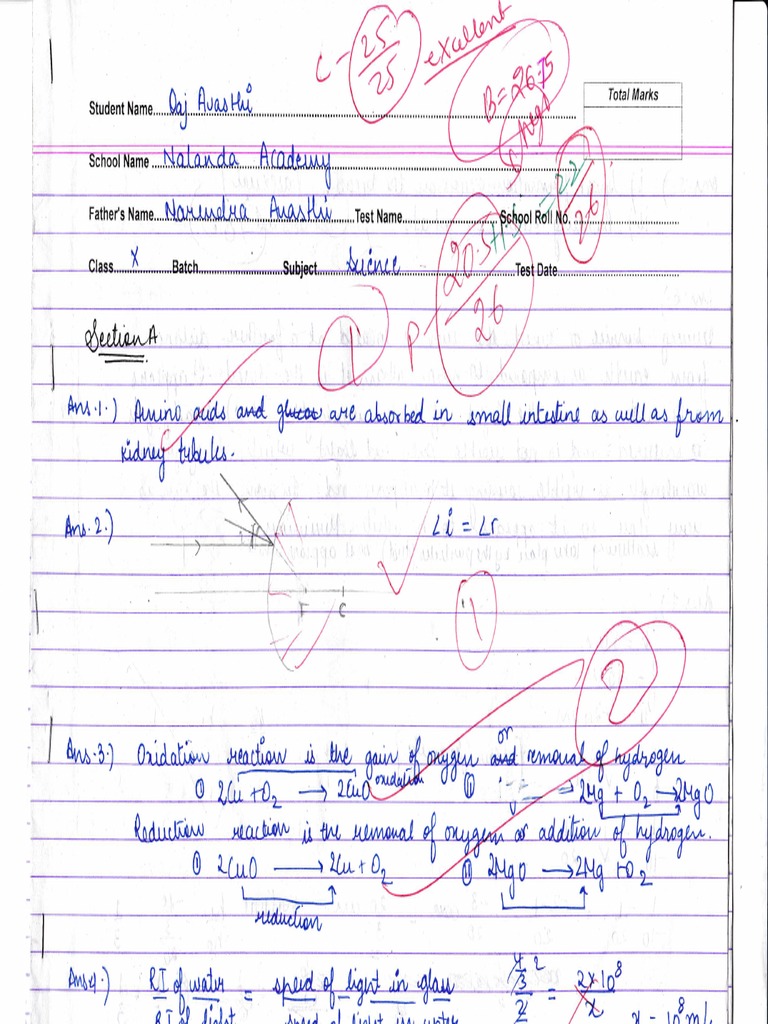 C - 25/25 excellent
B = 26.5
Total Marks
Student Name Oaj Avasthi
School Name Nalanda Academy
Father's Name Narendra Avasthi Test Name School Roll No.
22/26
P - 20.5+1.5/26
Class X Batch Subject Science Test Date
Section A
1
Ans.1.) Amino acids and glucose are absorbed in small intestine as well as from
kidney tubules.
Ans.2.) Li = Lr
i r
F C
1
2
Ans.3.) Oxidation reaction is the gain of oxygen and or removal of hydrogen
① 2Cu + O2 → 2CuO oxidation ⑪ 2Mg + O2 → 2MgO
Reduction reaction is the removal of oxygen or addition of hydrogen.
① 2CuO → 2Cu + O2 ⑪ 2MgO → 2Mg + O2
reduction
Ans4.) RI of water = speed of light in glass 4/3 2 = 2×10^8
RI of light speed of light in water 2 x x = 10^8 m/